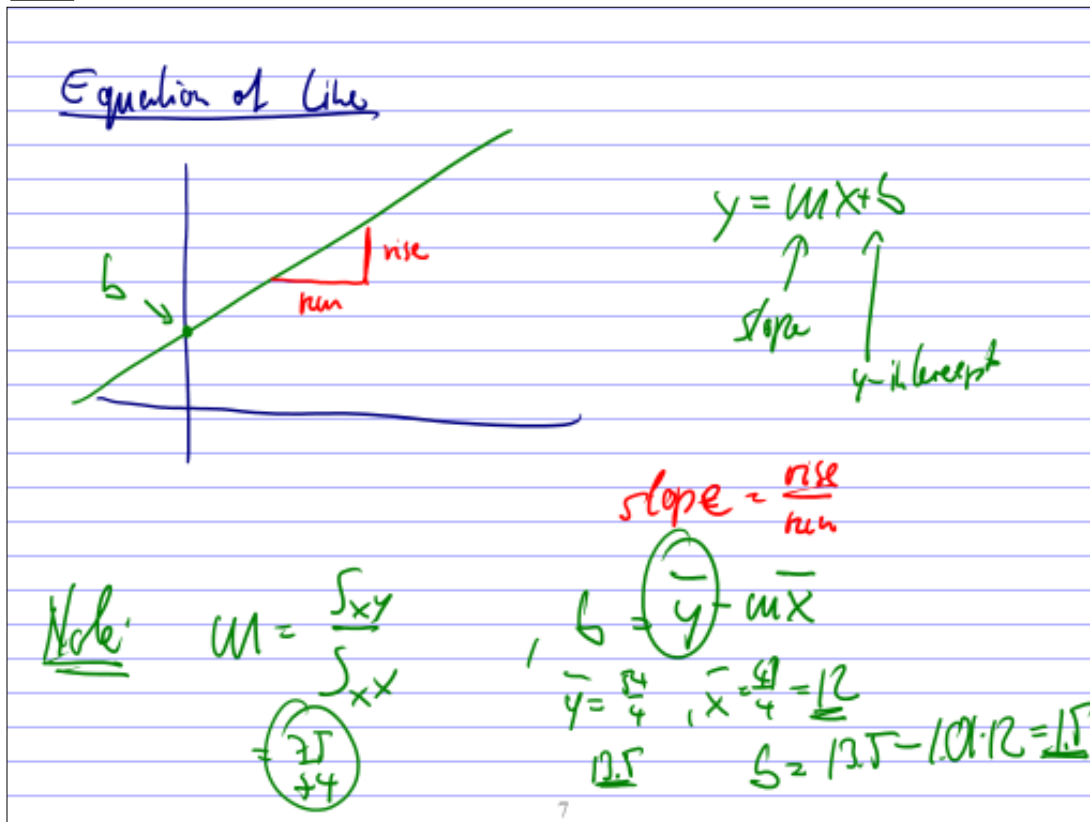 Equation of Line
y = mx+b
b
rise
run
slope
y-intercept
slope = rise/run
Note: m = Sxy/Sxx , b = ȳ - mx̄
= 75/74
ȳ = 54/4 , x̄ = /4 = 12
13.5
b = 13.5 - 1.01·12 = 1.5
7